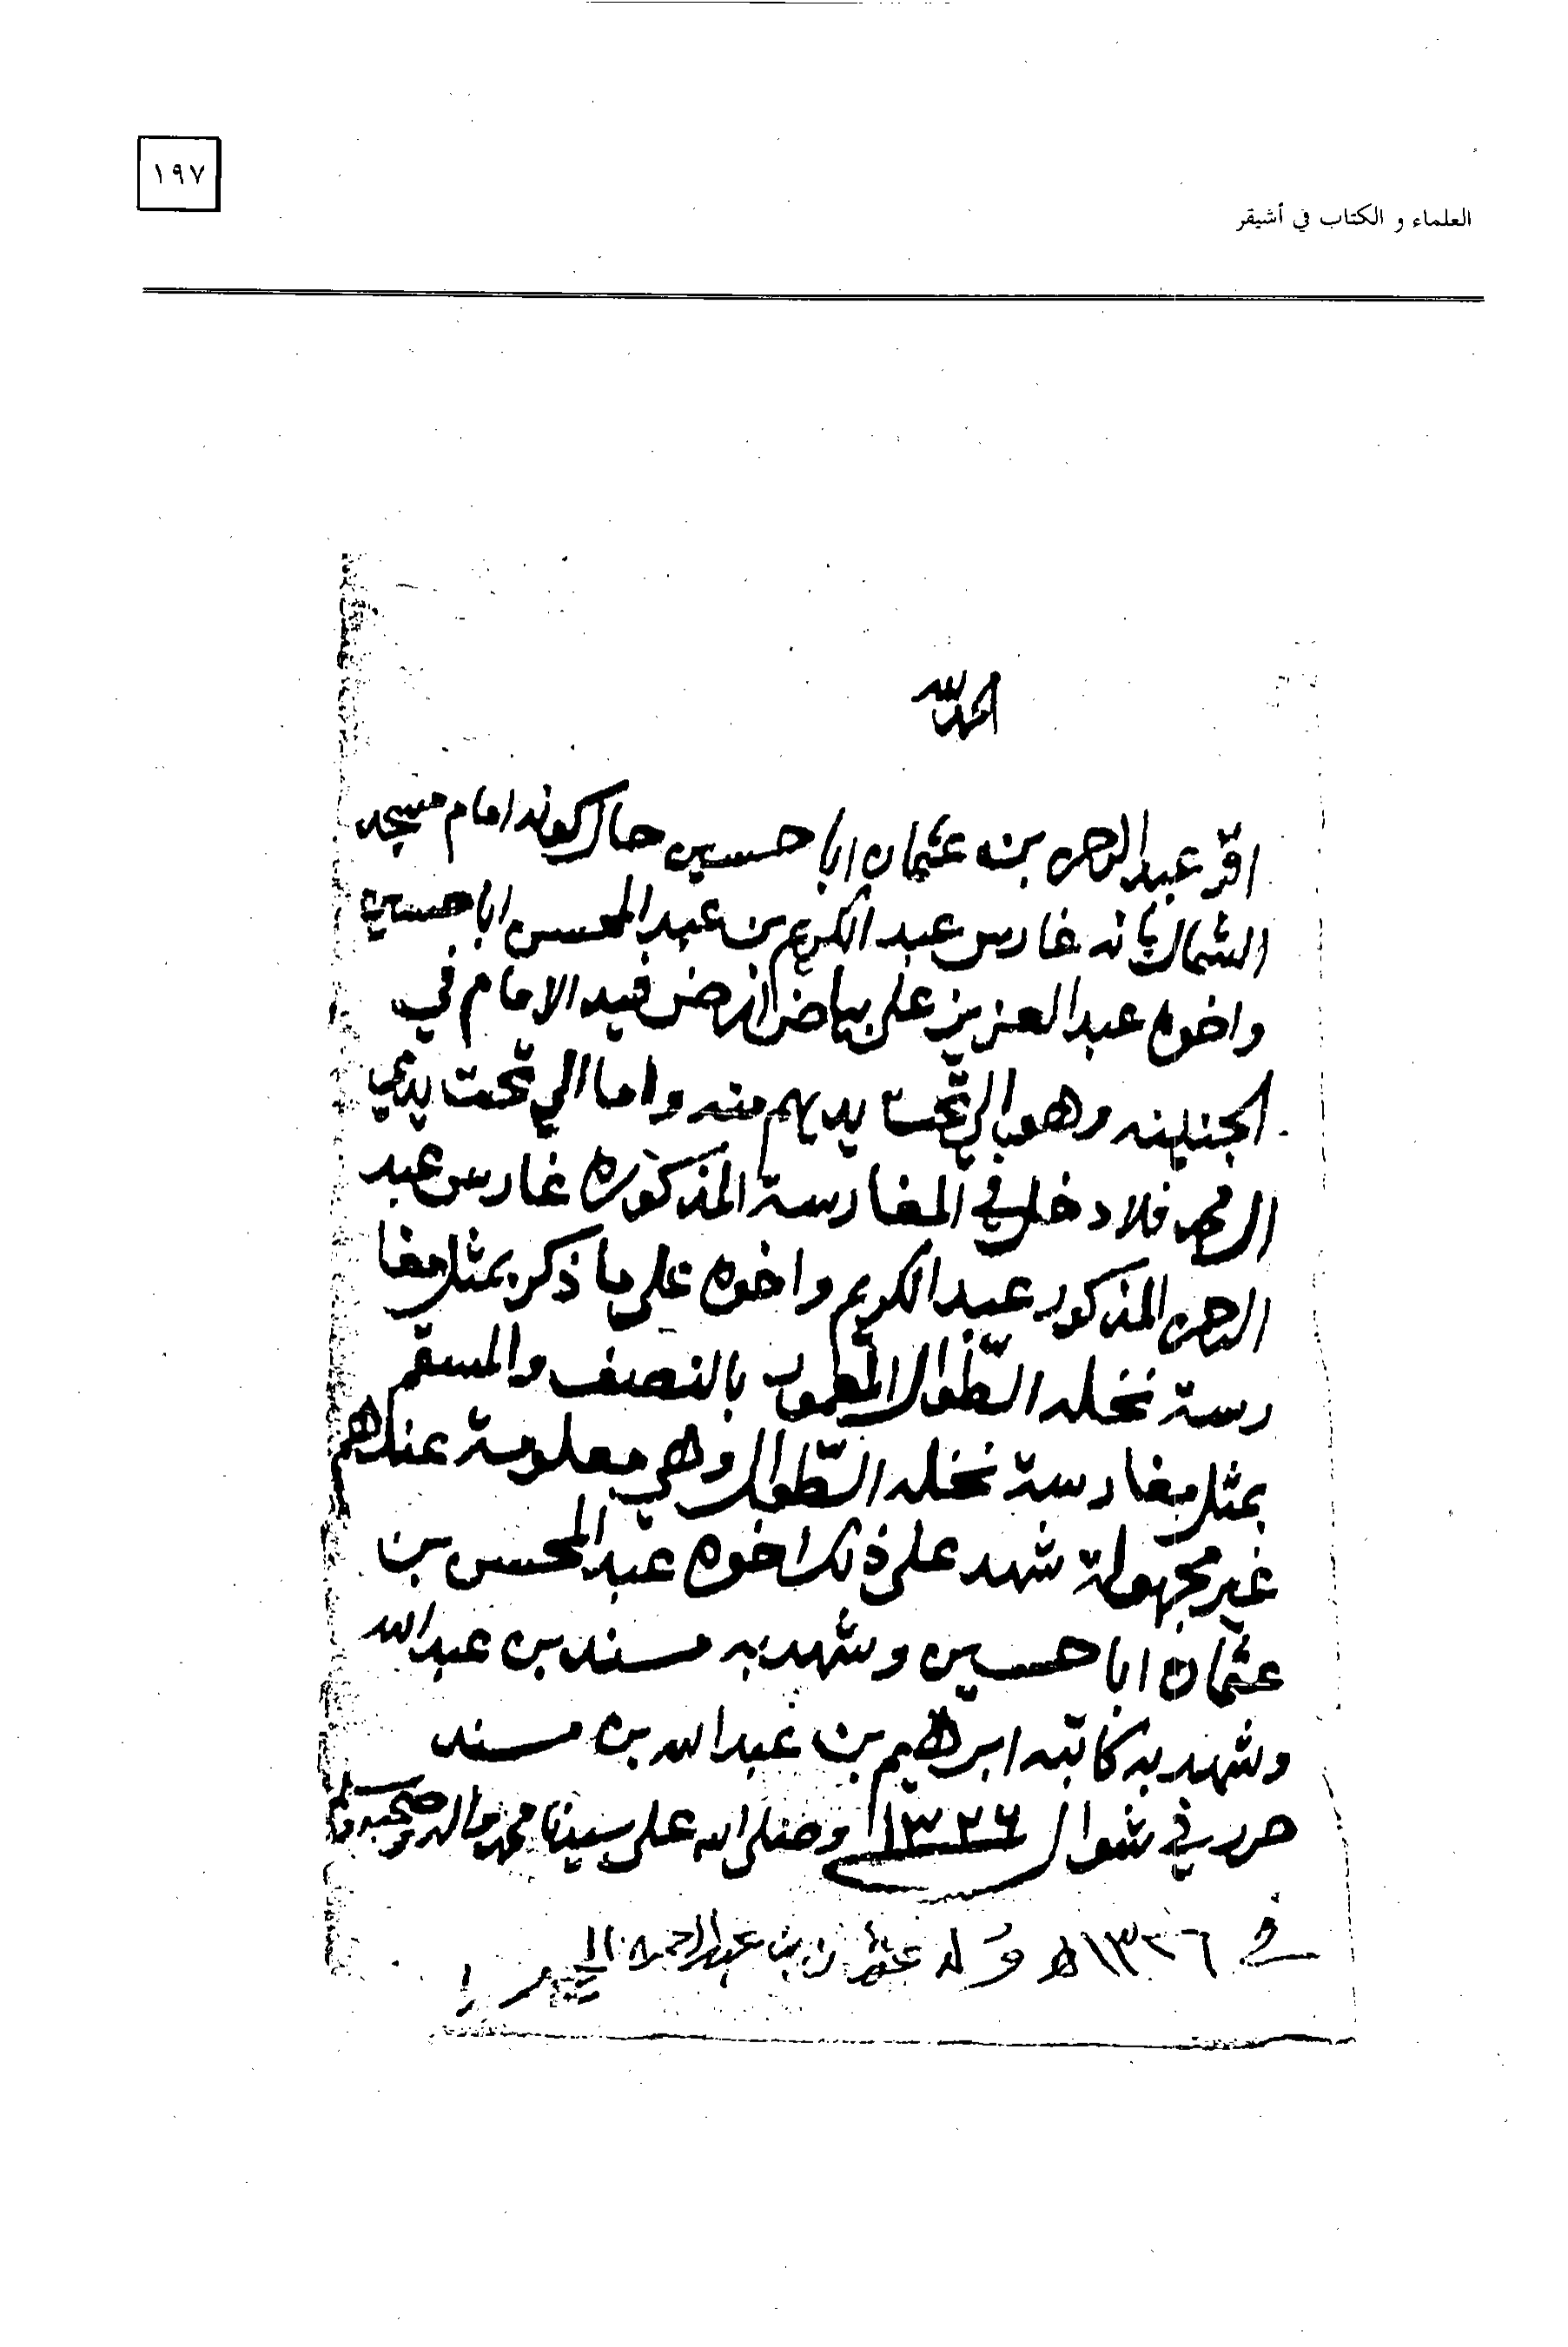 ١٩٧
العلماء و الكتاب في أشيقر
الحمد لله
اقرّ عبد الرحمن بن عثمان ابا حسين حال كونه امام مسجد
الشمال بانه غارس عبد الكريم بن عبد المحسن ابا حسين
واخوه عبد العزيز على بياض ارض فيد الامام في
الجنينه وهو الي تحت يديهم منه واما الي تحت يدي
محمد فلا دخل في المغارسة المذكوره غارس عبد
الرحمن المذكور عبد الكريم واخوه على ما ذكر بمثل مغا
رسة نخله الطّوال المعمور بالنصف والمسقم
بمثل مغارسة نخله الطّوال وهي معلومة عندهم
غير مجهولة شهد على ذلك اخوه عبد المحسن بن
عثمان ابا حسين وشهد به مسند بن عبد الله
وشهد به كاتبه ابرهيم بن عبد الله بن مسند
حرر في شوال ١٣٢٦ وصلى الله على سيدنا محمد واله وصحبه وسلم
في ١٣٢٦ه عثمان بن عبد الرحمن